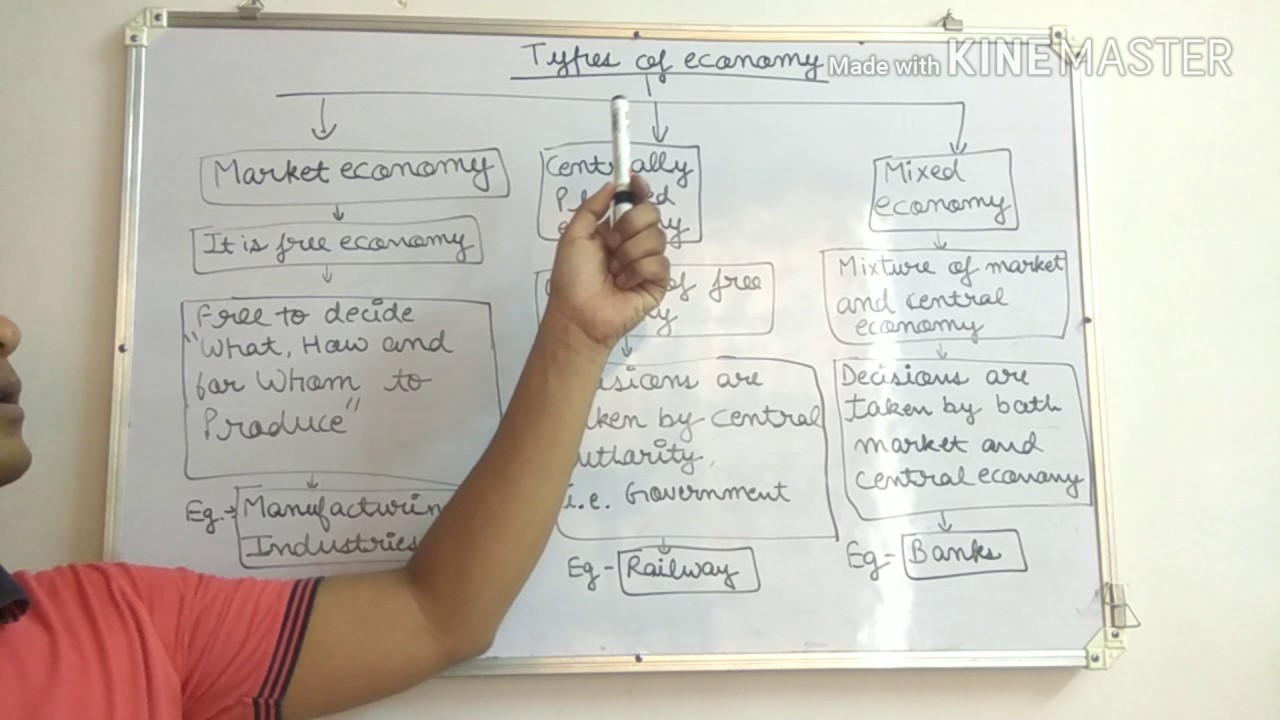 Types of economy
Made with KINEMASTER
Market economy
It is free economy
Free to decide
"What, How and
for Whom to
Produce"
Eg.→ Manufacturin
Industries
Centrally
of free
are
by central
i.e. Government
Eg - Railway
Mixed
economy
Mixture of market
and central
economy
Decisions are
taken by both
market and
central economy
Eg - Banks